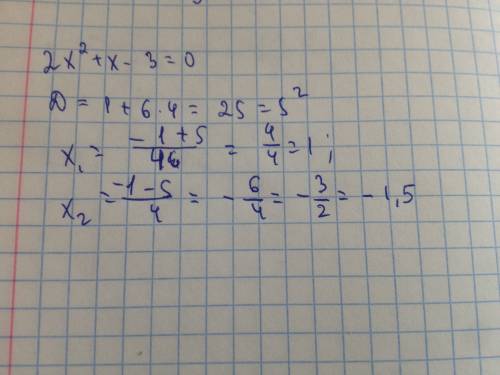 2x² + x - 3 = 0
D = 1 + 6 · 4 = 25 = 5²
x₁ = (-1 + 5)/4 = 4/4 = 1 ;
x₂ = (-1 - 5)/4 = - 6/4 = - 3/2 = - 1,5